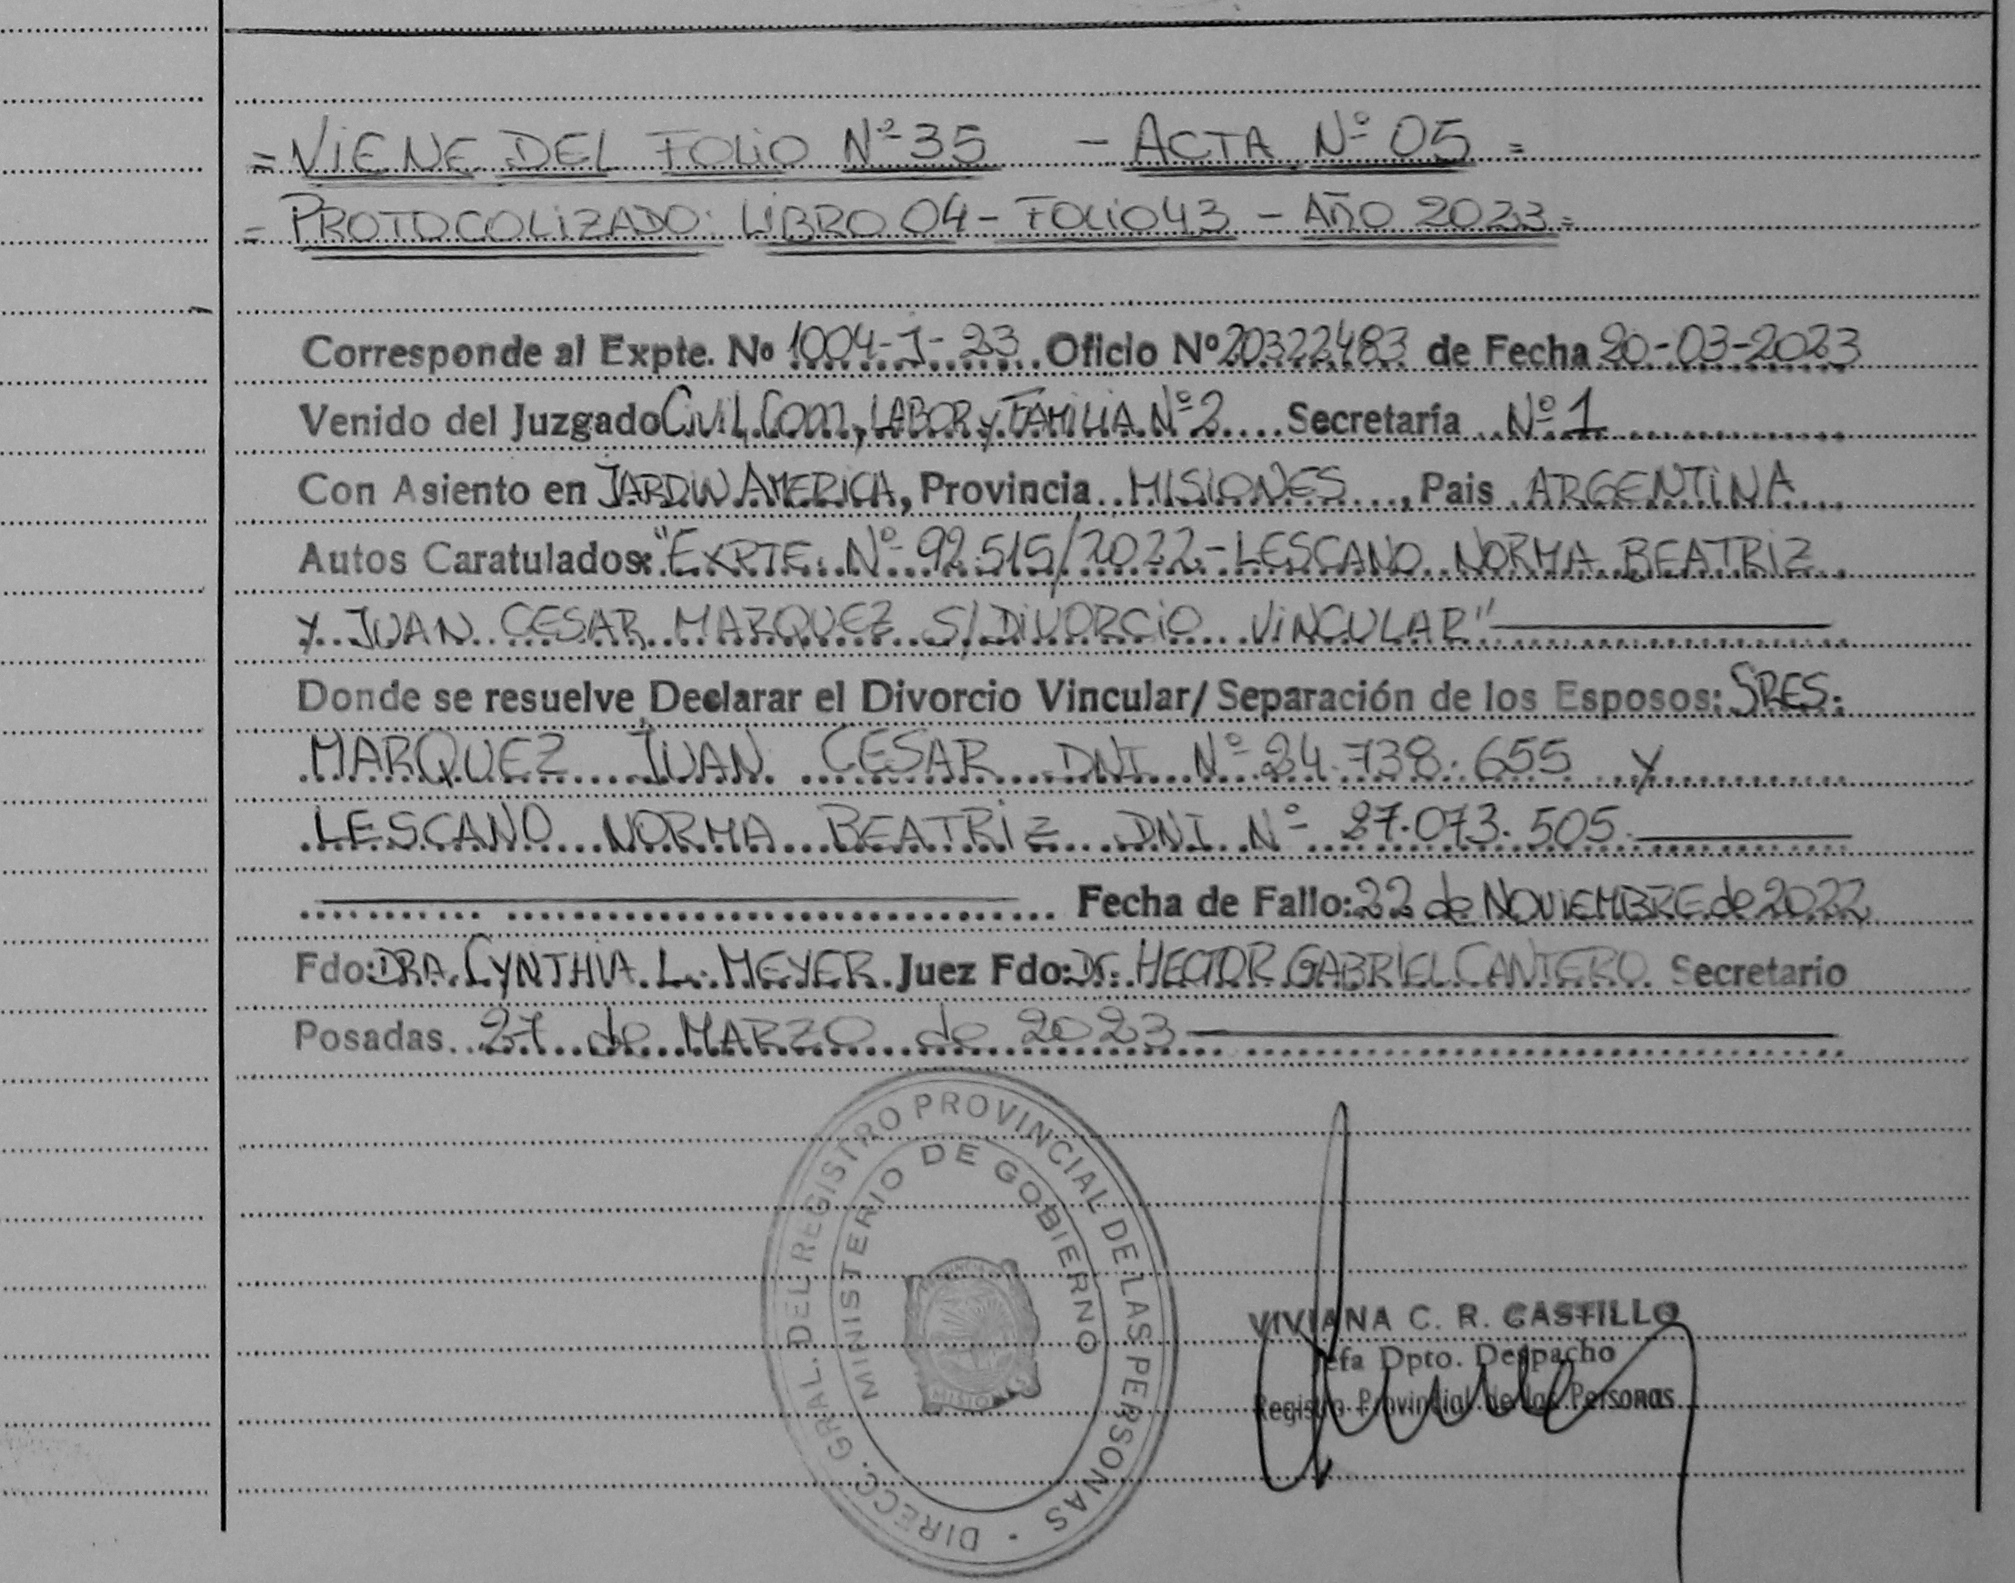 = VIENE DEL FOLIO Nº 35 - ACTA Nº 05 =
= PROTOCOLIZADO: LIBRO 04 - FOLIO 43 - AÑO 2023 =
Corresponde al Expte. Nº 1004-J-23 Oficio Nº 20322483 de Fecha 20-03-2023
Venido del Juzgado Civil, Com, LABOR y FAMILIA Nº 2 Secretaría Nº 1
Con Asiento en JARDIN AMERICA, Provincia MISIONES, Pais ARGENTINA
Autos Caratulados: "EXPTE. Nº 92.515/2022 - LESCANO NORMA BEATRIZ
Y JUAN CESAR MARQUEZ S/ DIVORCIO VINCULAR"
Donde se resuelve Declarar el Divorcio Vincular/ Separación de los Esposos: SRES.
MARQUEZ JUAN CESAR DNI Nº 24.738.655 Y
LESCANO NORMA BEATRIZ DNI Nº 27.073.505
Fecha de Fallo: 22 de NOVIEMBRE de 2022
Fdo: DRA. CYNTHIA L. MEYER Juez Fdo: Dr. HECTOR GABRIEL CANTERO Secretario
Posadas 27 de MARZO de 2023
DIRECC. GRAL. DEL REGISTRO PROVINCIAL DE LAS PERSONAS
MINISTERIO DE GOBIERNO
MISIONES
VIVIANA C. R. CASTILLO
Jefa Dpto. Despacho
Registro Provincial de las Personas